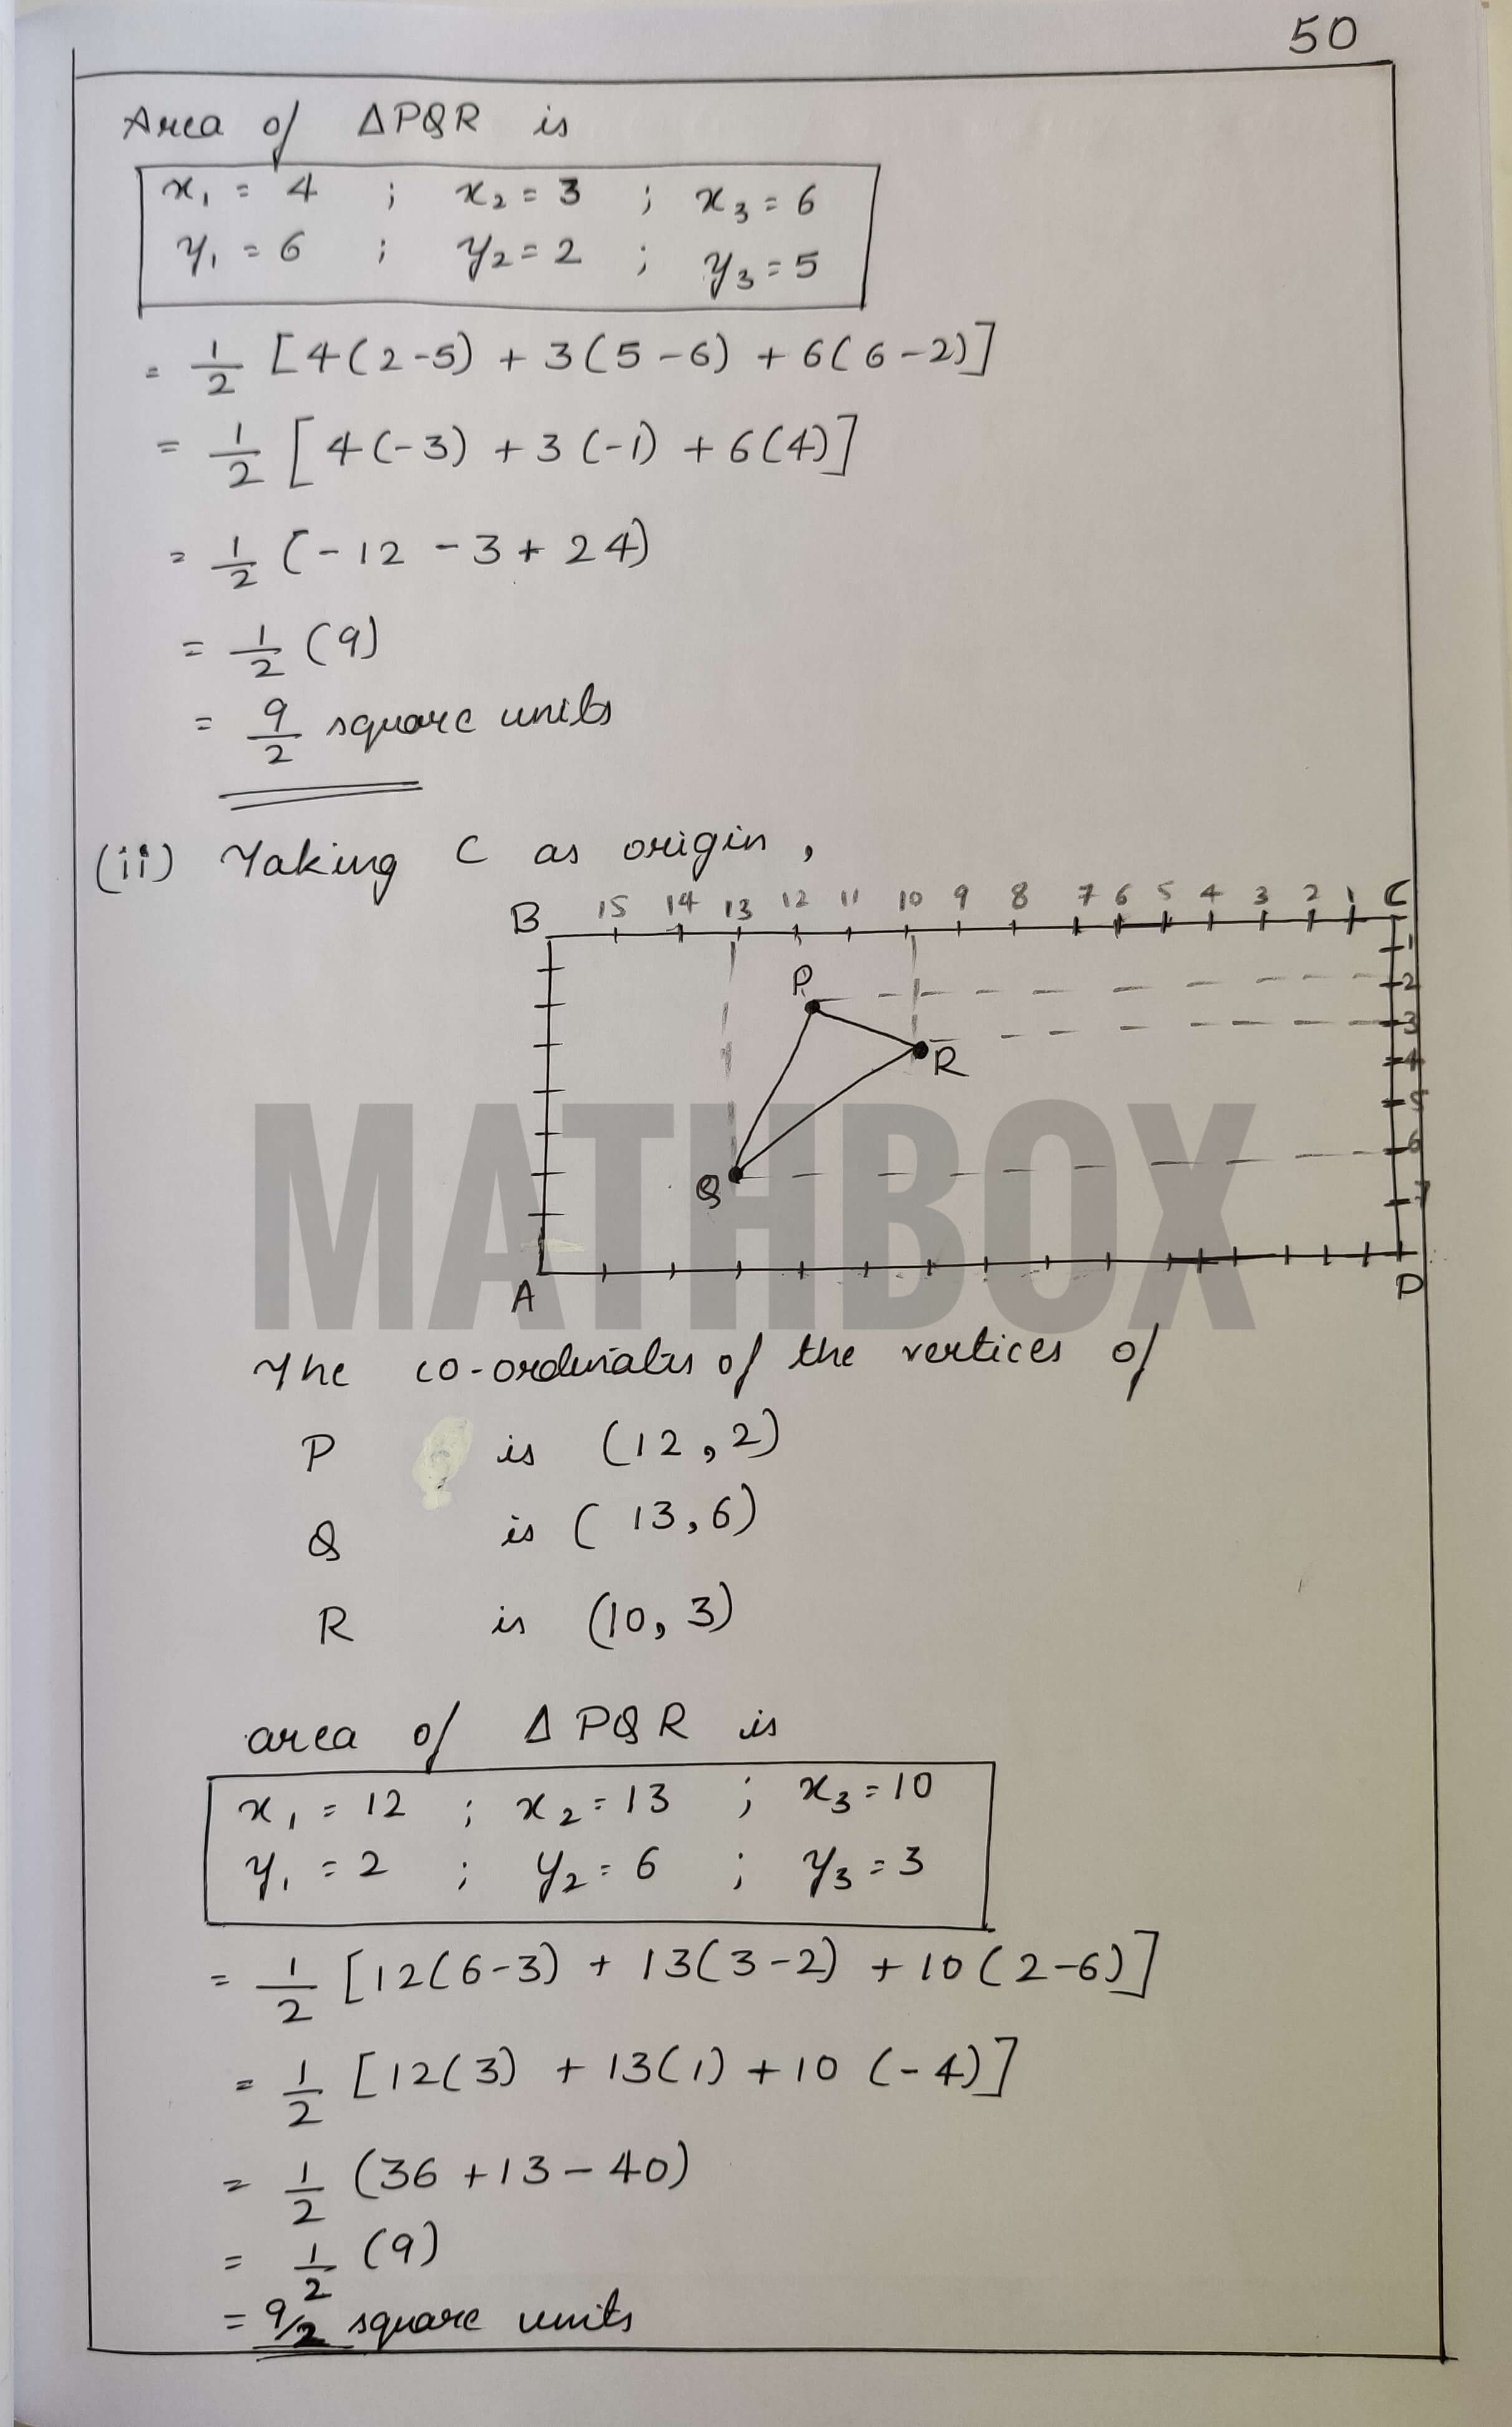 50
Area of ΔPQR is
x₁ = 4 ; x₂ = 3 ; x₃ = 6
y₁ = 6 ; y₂ = 2 ; y₃ = 5
= 1/2 [4(2-5) + 3(5-6) + 6(6-2)]
= 1/2 [4(-3) + 3(-1) + 6(4)]
= 1/2 (-12 -3 + 24)
= 1/2 (9)
= 9/2 square units
(ii) Taking C as origin,
B 15 14 13 12 11 10 9 8 7 6 5 4 3 2 1 C
1
P 2
3
R 4
5
6
Q 7
A D
MATHBOX
The co-ordinates of the vertices of
P is (12,2)
Q is (13,6)
R is (10,3)
area of ΔPQR is
x₁ = 12 ; x₂ = 13 ; x₃ = 10
y₁ = 2 ; y₂ = 6 ; y₃ = 3
= 1/2 [12(6-3) + 13(3-2) + 10(2-6)]
= 1/2 [12(3) + 13(1) + 10 (-4)]
= 1/2 (36 +13 - 40)
= 1/2 (9)
= 9/2 square units